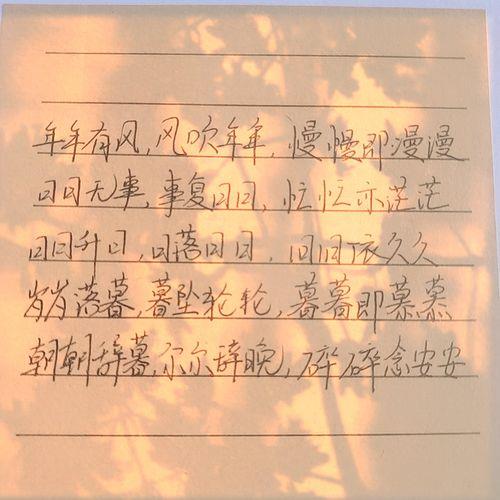 年年有风,风吹年年,慢慢即漫漫
日日无事,事复日日,忙忙亦茫茫
日日升日,日落日日,旧旧依久久
岁岁落暮,暮坠轮轮,暮暮即慕慕
朝朝辞暮,尔尔辞晚,碎碎念安安